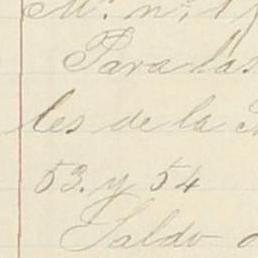 Mr. n.º 1
Para las
les de la
53. y 54
Saldo